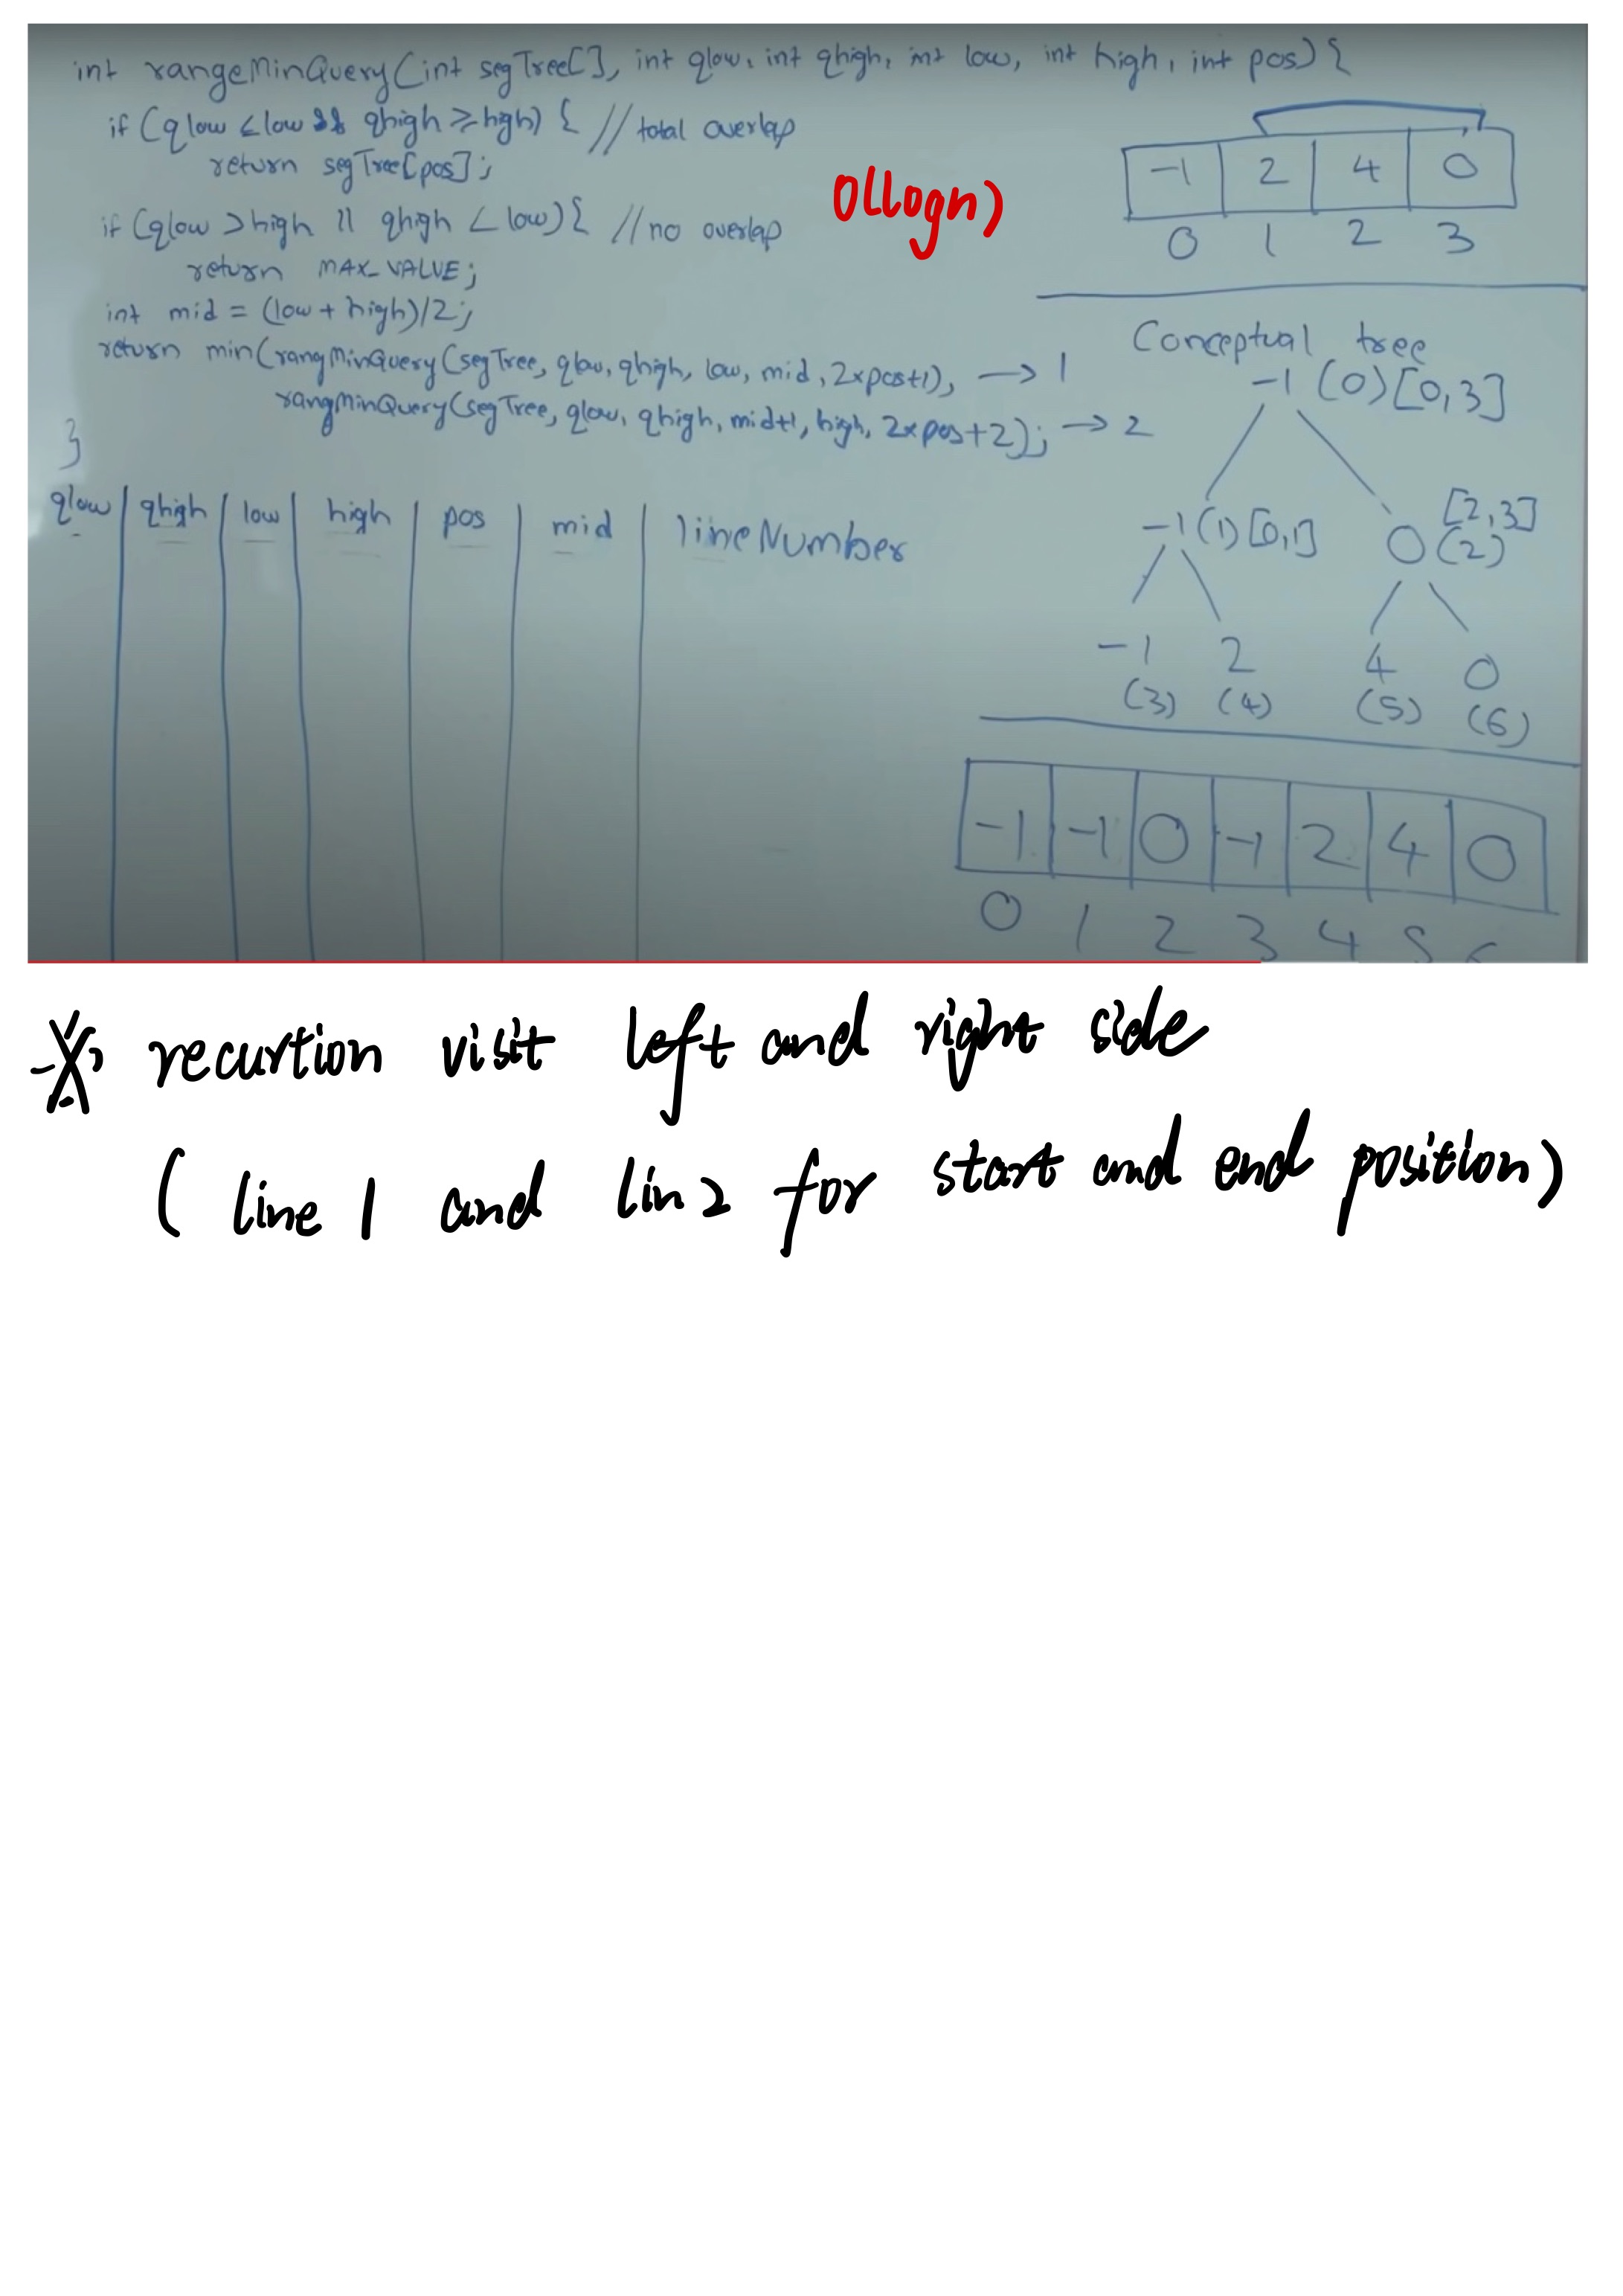 int rangeMinQuery(int segTree[], int qlow, int qhigh, int low, int high, int pos) {
if (qlow ≤ low && qhigh ≥ high) { // total overlap
return segTree[pos];
if (qlow > high || qhigh < low) { // no overlap
return MAX_VALUE;
int mid = (low + high)/2;
return min(rangMinQuery(segTree, qlow, qhigh, low, mid, 2xpos+1), → 1
rangMinQuery(segTree, qlow, qhigh, mid+1, high, 2xpos+2); → 2
}
O(logn)
-1 2 4 0
0 1 2 3
Conceptual tree
-1 (0) [0,3]
-1 (1) [0,1] 0 (2) [2,3]
-1 2 4 0
(3) (4) (5) (6)
-1 -1 0 -1 2 4 0
0 1 2 3 4 5
qlow qhigh low high pos mid lineNumber
recurtion visit left and right side
( line 1 and lin 2 for start and end position)